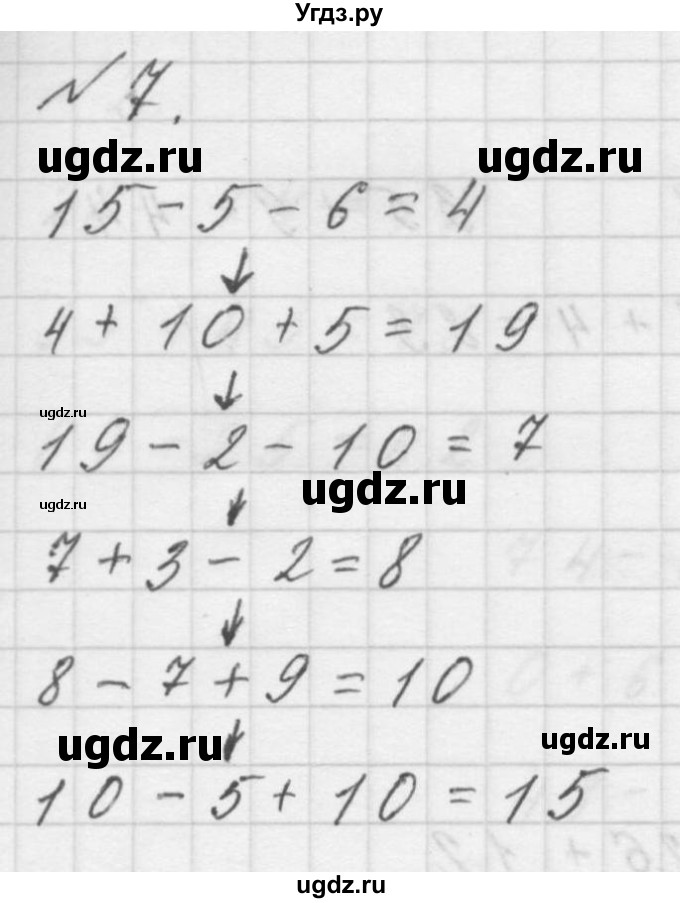 Угдз.ру
№ 7.
ugdz.ru ugdz.ru
15 - 5 - 6 = 4
↓
4 + 10 + 5 = 19
↓
ugdz.ru
19 - 2 - 10 = 7
ugdz.ru
↓
ugdz.ru
7 + 3 - 2 = 8
↓
8 - 7 + 9 = 10
↓
ugdz.ru ugdz.ru
10 - 5 + 10 = 15
ugdz.ru